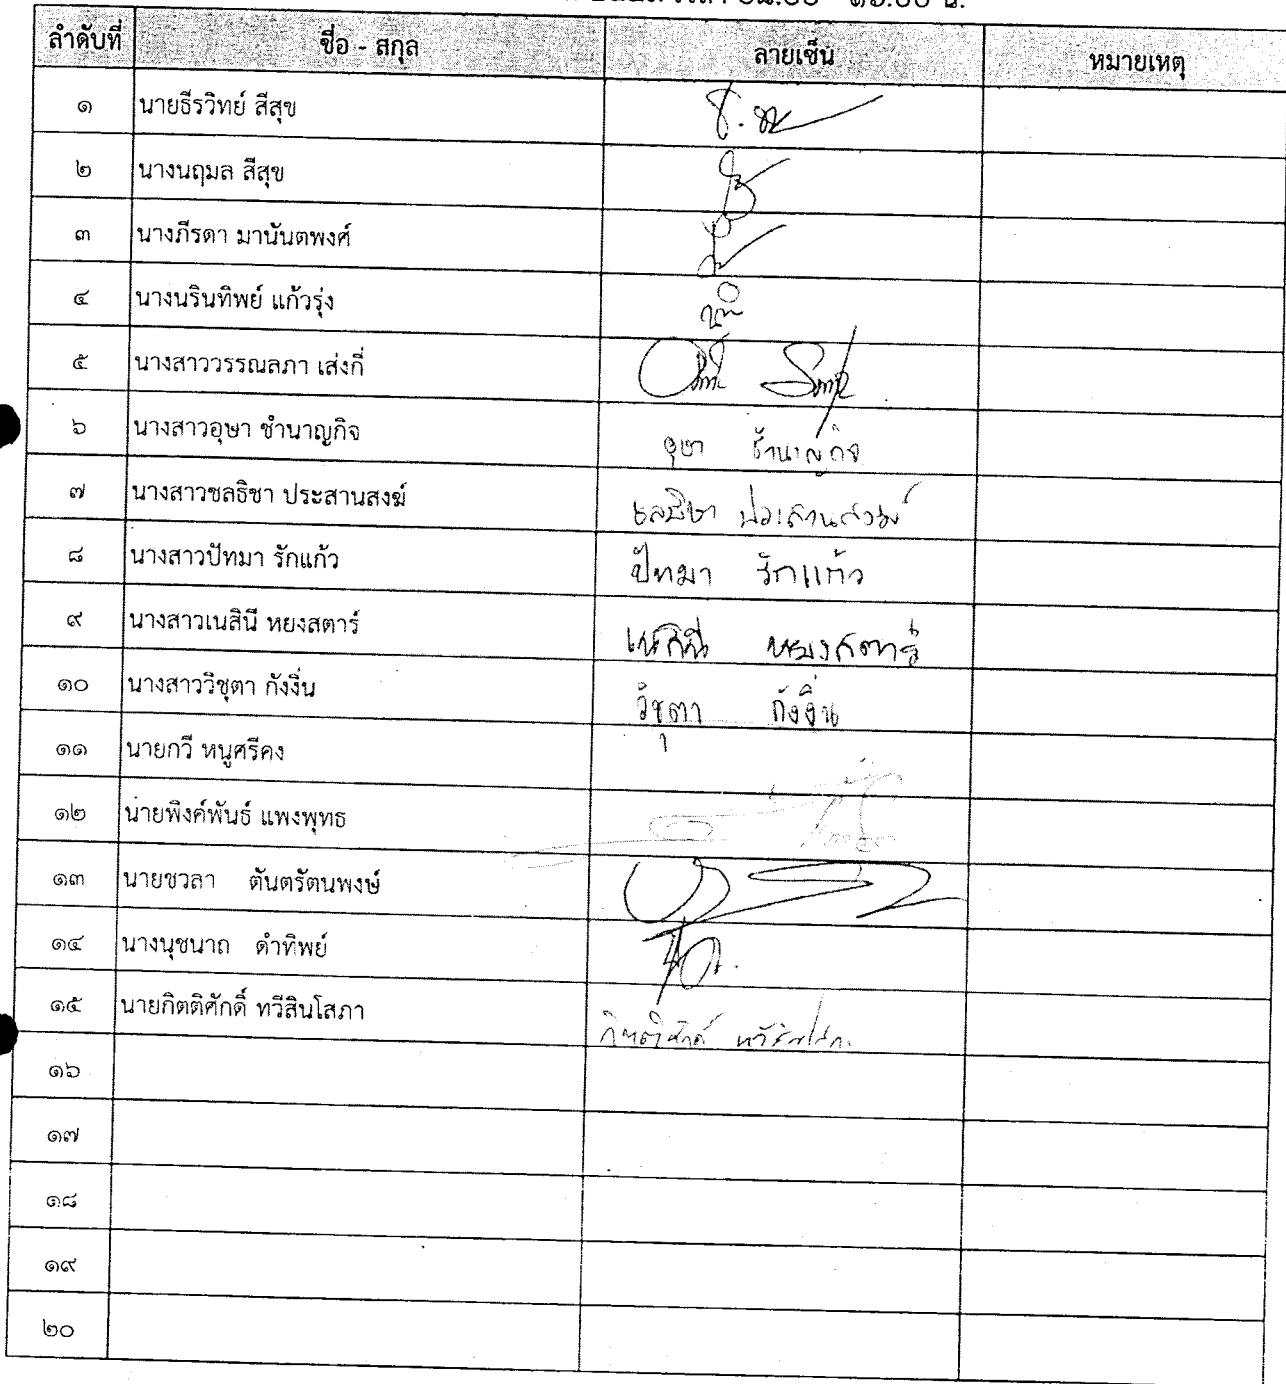 ลำดับที่ ชื่อ - สกุล ลายเซ็น หมายเหตุ
๑ นายธีรวิทย์ สีสุข
๒ นางนฤมล สีสุข
๓ นางภีรดา มานันตพงศ์
๔ นางนรินทิพย์ แก้วรุ่ง
๕ นางสาววรรณลภา เส่งกี่
๖ นางสาวอุษา ชำนาญกิจ อุษา ชำนาญกิจ
๗ นางสาวชลธิชา ประสานสงฆ์ ชลธิชา ประสานสงฆ์
๘ นางสาวปัทมา รักแก้ว ปัทมา รักแก้ว
๙ นางสาวเนสินี หยงสตาร์ เนสินี หยงสตาร์
๑๐ นางสาววิชุตา กังงิ่น วิชุตา กังงิ่น
๑๑ นายกวี หนูศรีคง
๑๒ นายพิงค์พันธ์ แพงพุทธ
๑๓ นายชวลา ตันตรัตนพงษ์
๑๔ นางนุชนาถ ดำทิพย์
๑๕ นายกิตติศักดิ์ ทวีสินโสภา กิตติศักดิ์ ทวีสินโสภา
๑๖
๑๗
๑๘
๑๙
๒๐